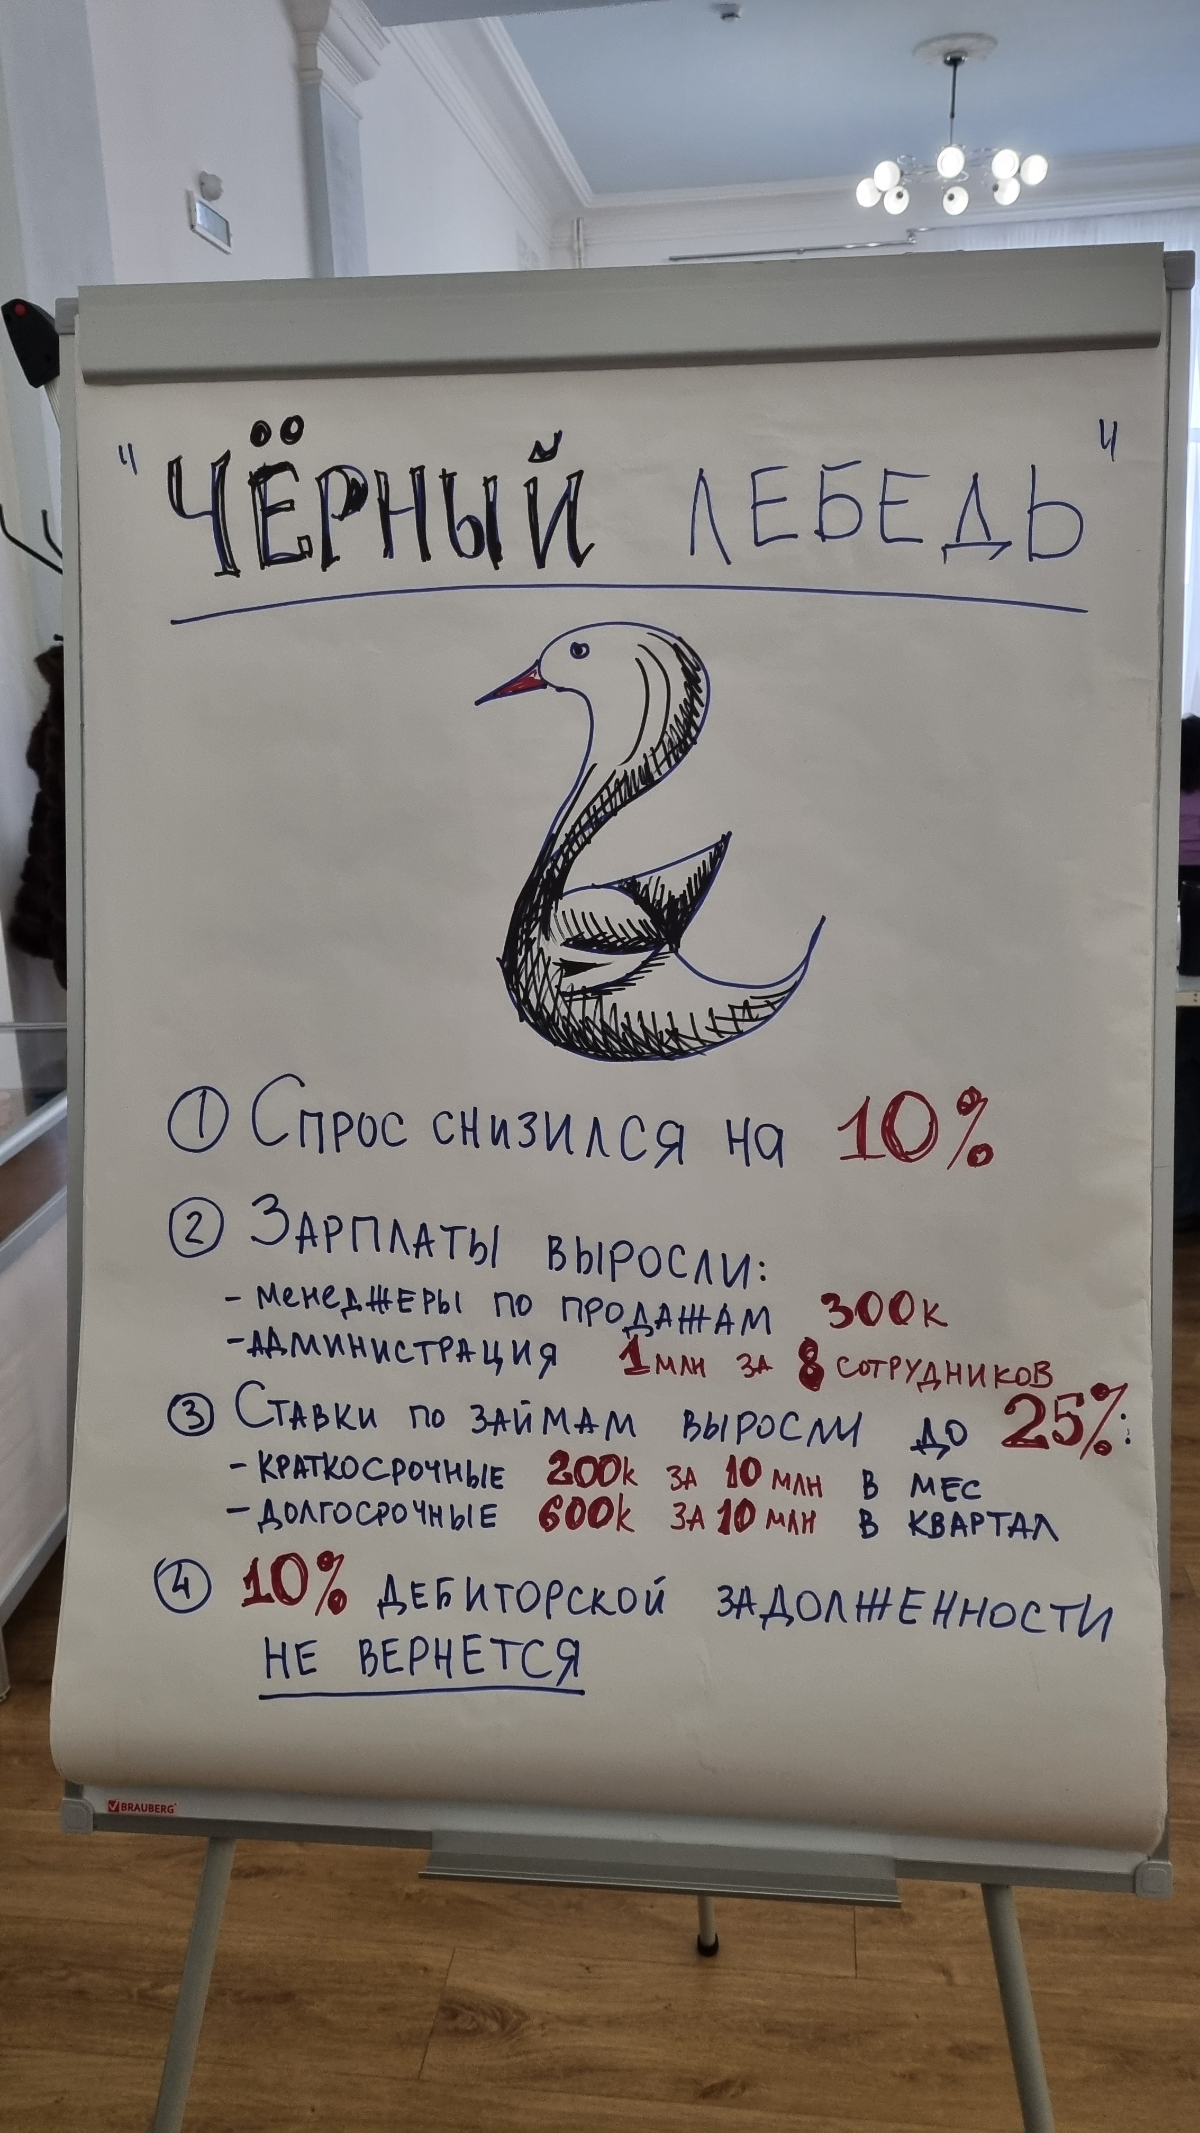 "ЧЁРНЫЙ ЛЕБЕДЬ"
① СПРОС СНИЗИЛСЯ НА 10%
② ЗАРПЛАТЫ ВЫРОСЛИ:
- МЕНЕДЖЕРЫ ПО ПРОДАЖАМ 300К
- АДМИНИСТРАЦИЯ 1 МЛН ЗА 8 СОТРУДНИКОВ
③ СТАВКИ ПО ЗАЙМАМ ВЫРОСЛИ ДО 25%:
- КРАТКОСРОЧНЫЕ 200К ЗА 10 МЛН В МЕС
- ДОЛГОСРОЧНЫЕ 600К ЗА 10 МЛН В КВАРТАЛ
④ 10% ДЕБИТОРСКОЙ ЗАДОЛЖЕННОСТИ
НЕ ВЕРНЕТСЯ
BRAUBERG